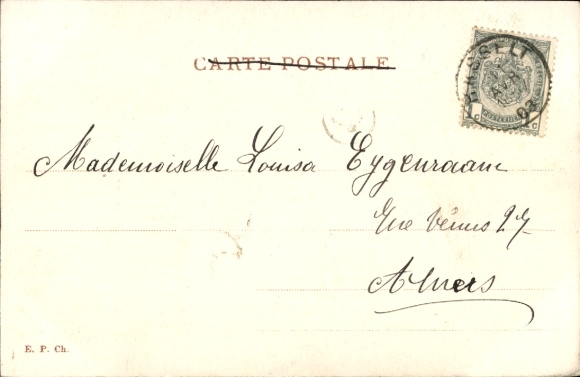 CARTE POSTALE
HASSELT
03
1 C POSTERIJEN 1 C
Mademoiselle Louisa Eygenraam
Rue Vénus 27
Anvers
E. P. Ch.